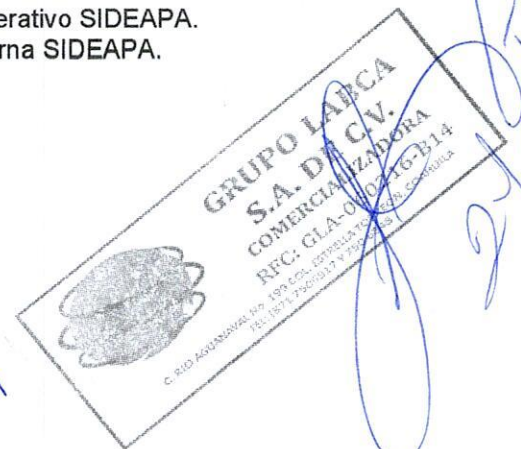 erativo SIDEAPA.
rna SIDEAPA.
GRUPO LABCA
S.A. DE C.V.
COMERCIALIZADORA
RFC: GLA-0
16-B14
C. RIO AGUANAVAL No. 193 COL. ESTRELLA TORREON, COAHUILA
TEL (871